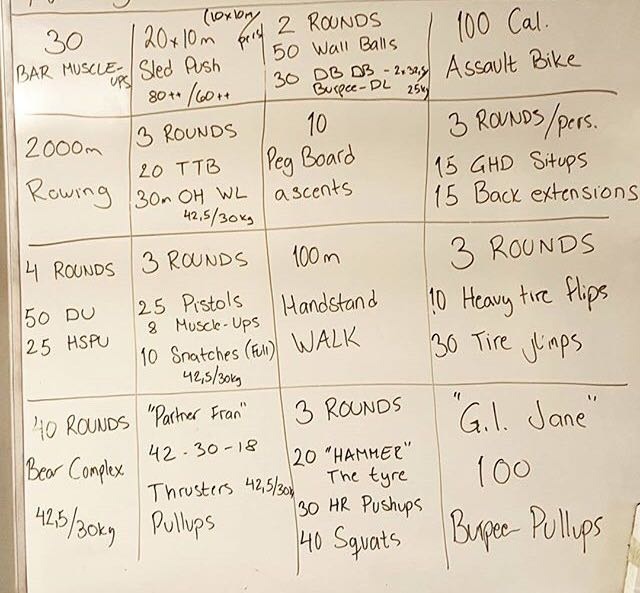 30
BAR MUSCLE-
UPS
(10x10m/
pers)
20x10m
Sled Push
80++/60++
2 ROUNDS
50 Wall Balls
30 DB DB - 2x32,5/
Burpee-DL 25kg
100 Cal.
Assault Bike
2000m
Rowing
3 ROUNDS
20 TTB
30m OH WL
42,5/30kg
10
Peg Board
ascents
3 ROUNDS/pers.
15 GHD Situps
15 Back extensions
4 ROUNDS
50 DU
25 HSPU
3 ROUNDS
25 Pistols
8 Muscle-Ups
10 Snatches (Full)
42,5/30kg
100m
Handstand
WALK
3 ROUNDS
10 Heavy tire flips
30 Tire jumps
40 ROUNDS
Bear Complex
42,5/30kg
"Partner Fran"
42-30-18
Thrusters 42,5/30kg
Pullups
3 ROUNDS
20 "HAMMER"
The tyre
30 HR Pushups
40 Squats
"G.I. Jane"
100
Burpee-Pullups